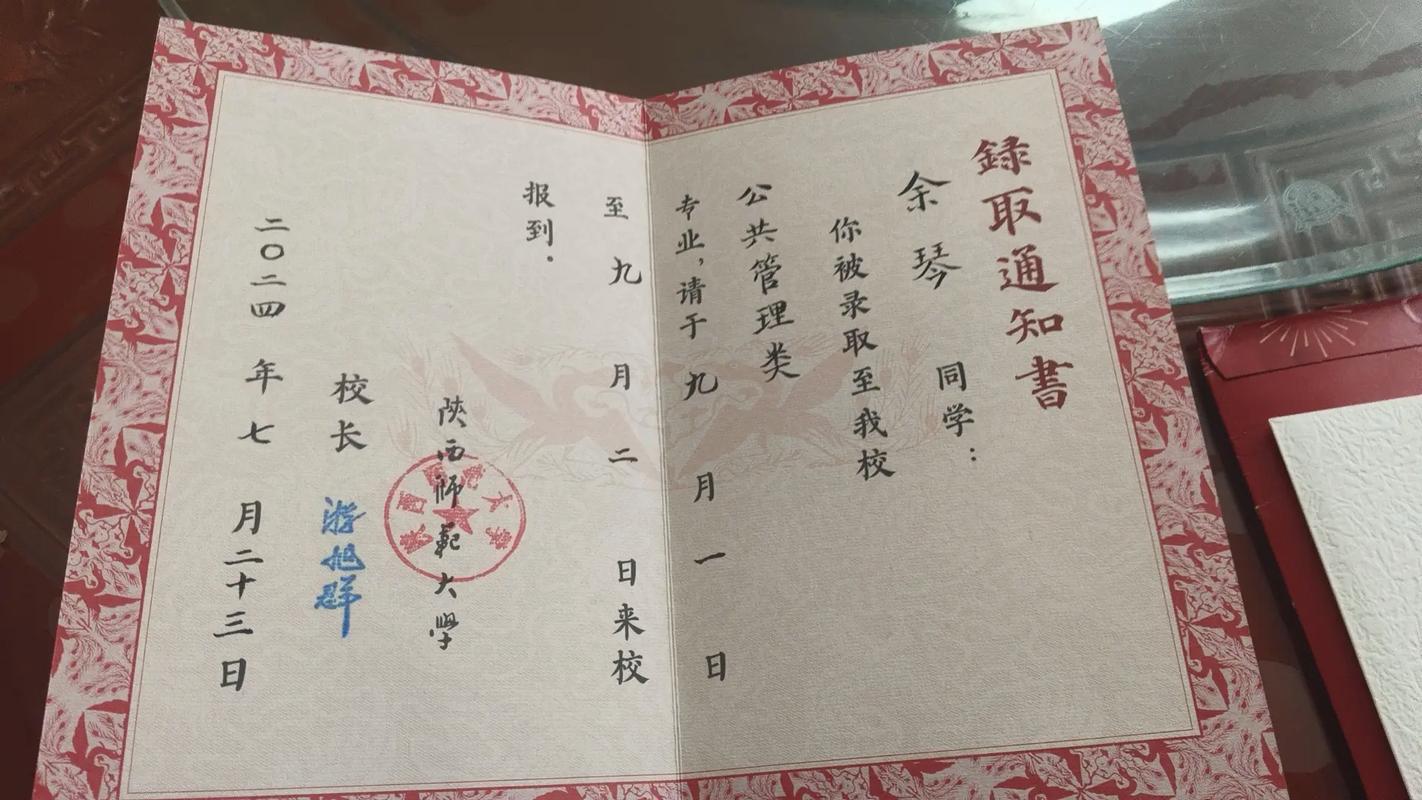 録取通知書
余琴 同学：
你被录取至我校
公共管理类
专业，请于九月一日
至九月二日来校
报到.
陕西师範大學
校长 游旭群
二〇二四年七月二十三日